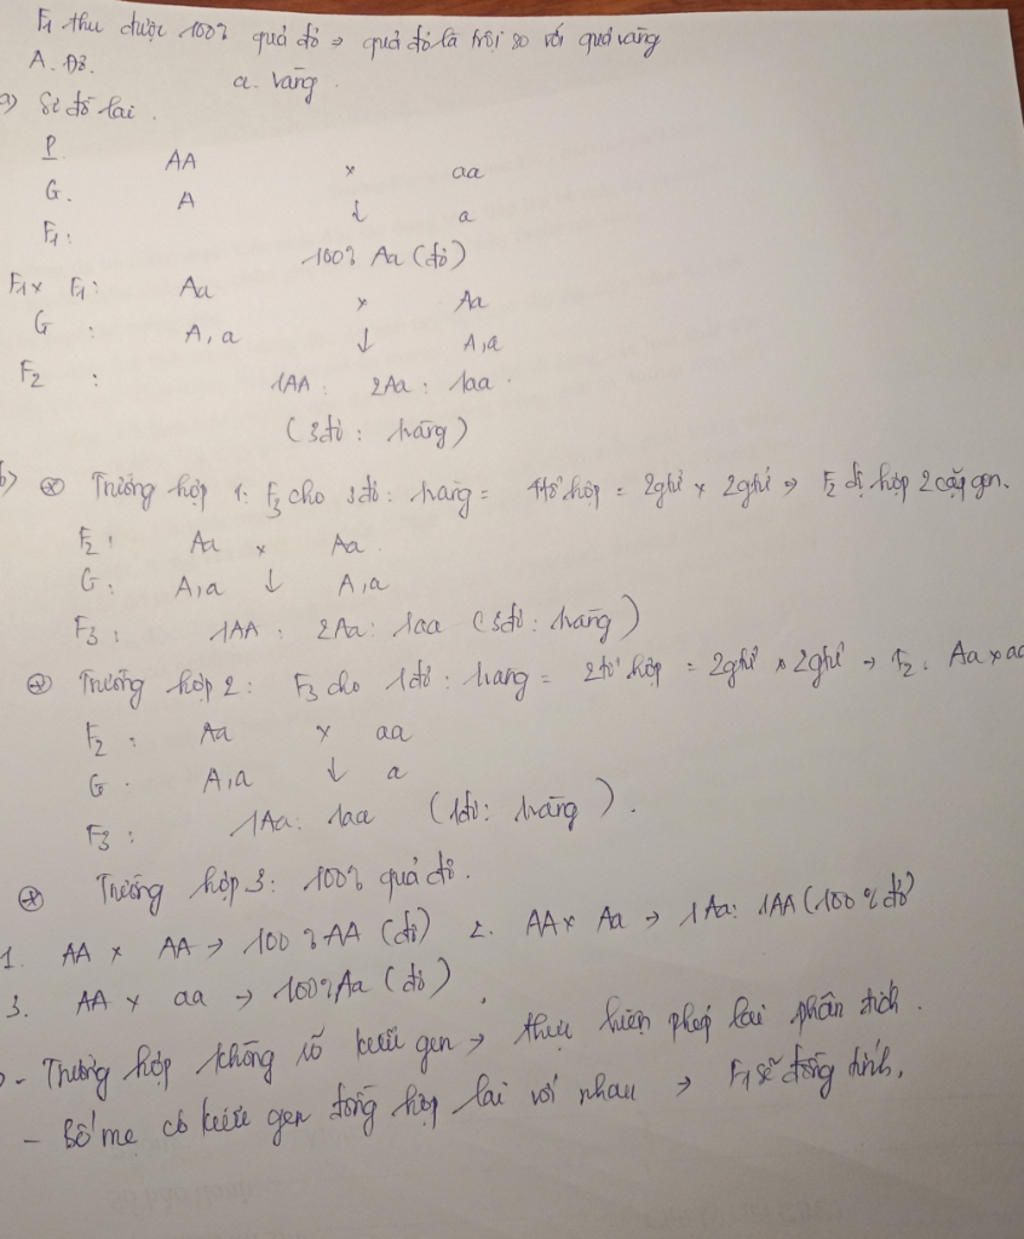 F1 thu được 100% quả đỏ → quả đỏ là trội so với quả vàng
A. Đỏ. a. vàng.
a) Sơ đồ lai.
P. AA × aa
G. A ↓ a
F1: 100% Aa (đỏ)
F1 × F1: Aa × Aa
G : A, a ↓ A, a
F2 : 1AA : 2Aa : 1aa.
(3đỏ : 1vàng)
b) ⊛ Trường hợp 1: F3 cho 3đỏ : 1vàng = 4 tổ hợp = 2gtử × 2gtử → F2 dị hợp 2 cặp gen.
F2: Aa × Aa.
G: A, a ↓ A, a
F3: 1AA : 2Aa : 1aa (3đỏ : 1vàng)
⊛ Trường hợp 2: F3 cho 1đỏ : 1vàng = 2 tổ hợp = 2gtử × 2gtử → F2: Aa × aa
F2 : Aa × aa
G. A, a ↓ a
F3 : 1Aa : 1aa (1đỏ : 1vàng).
⊛ Trường hợp 3: 100% quả đỏ.
1. AA × AA → 100% AA (đỏ) 2. AA × Aa → 1Aa : 1AA (100% đỏ)
3. AA × aa → 100% Aa (đỏ),
- Trường hợp không rõ kiểu gen → thực hiện phép lai phân tích.
- Bố mẹ có kiểu gen đồng hợp lai với nhau → F1 sẽ đồng tính,